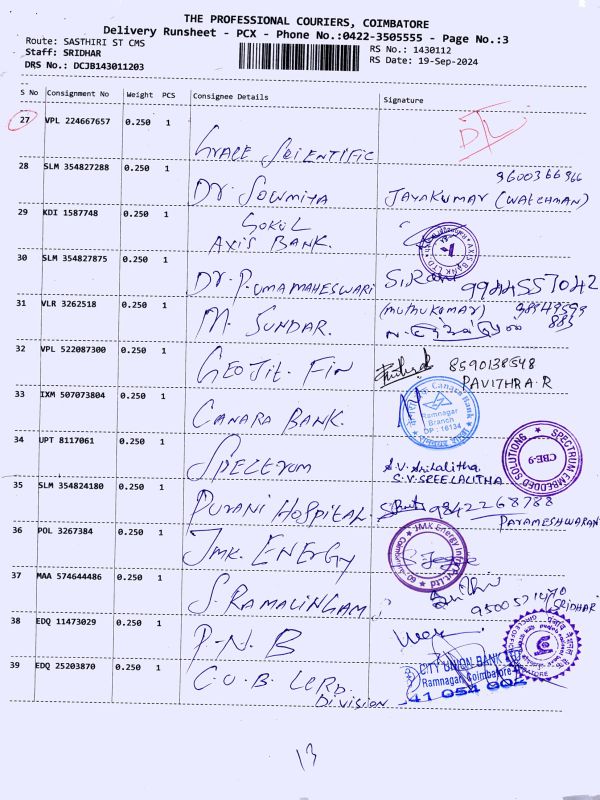 THE PROFESSIONAL COURIERS, COIMBATORE
Delivery Runsheet - PCX - Phone No.:0422-3505555 - Page No.:3
Route: SASTHIRI ST CMS
RS No.: 1430112
Staff: SRIDHAR
RS Date: 19-Sep-2024
DRS No.: DCJB143011203
S No Consignment No Weight PCS Consignee Details Signature
27 VPL 224667657 0.250 1 GRACE SCIENTIFIC
28 SLM 354827288 0.250 1 DR. SOWMIYA 9600366966
JAYAKUMAR (WATCHMAN)
29 KDI 1587748 0.250 1 GOKUL
AXIS BANK. AXIS BANK LTD
30 SLM 354827875 0.250 1 DR. P. UMAMAHESWARI 9944557042
31 VLR 3262518 0.250 1 M. SUNDAR. (MUTHUKUMAR)
32 VPL 522087300 0.250 1 GEOJIT. FIN 8590138548
PAVITHRA.R
33 IXM 507073804 0.250 1 CANARA BANK. Canara Bank
Ramnagar
Branch
DP : 16134
34 UPT 8117061 0.250 1 SPECTRUM S.V. Srilalitha
S.V. SREELALITHA
SPECTRUM EMBEDDED SOLUTIONS
CBE-9
35 SLM 354824180 0.250 1 PURANI HOSPITAL. 9842268788
PARAMESHWARAN
36 POL 3267384 0.250 1 JMK. ENERGY JMK Energy Infra Pvt Ltd
37 MAA 574644486 0.250 1 S. RAMALINGAM
SRIDHAR
38 EDQ 11473029 0.250 1 P-N-B
39 EDQ 25203870 0.250 1 C.U.B. LCRD
DIVISION
CITY UNION BANK
Ramnagar, Coimbatore
13